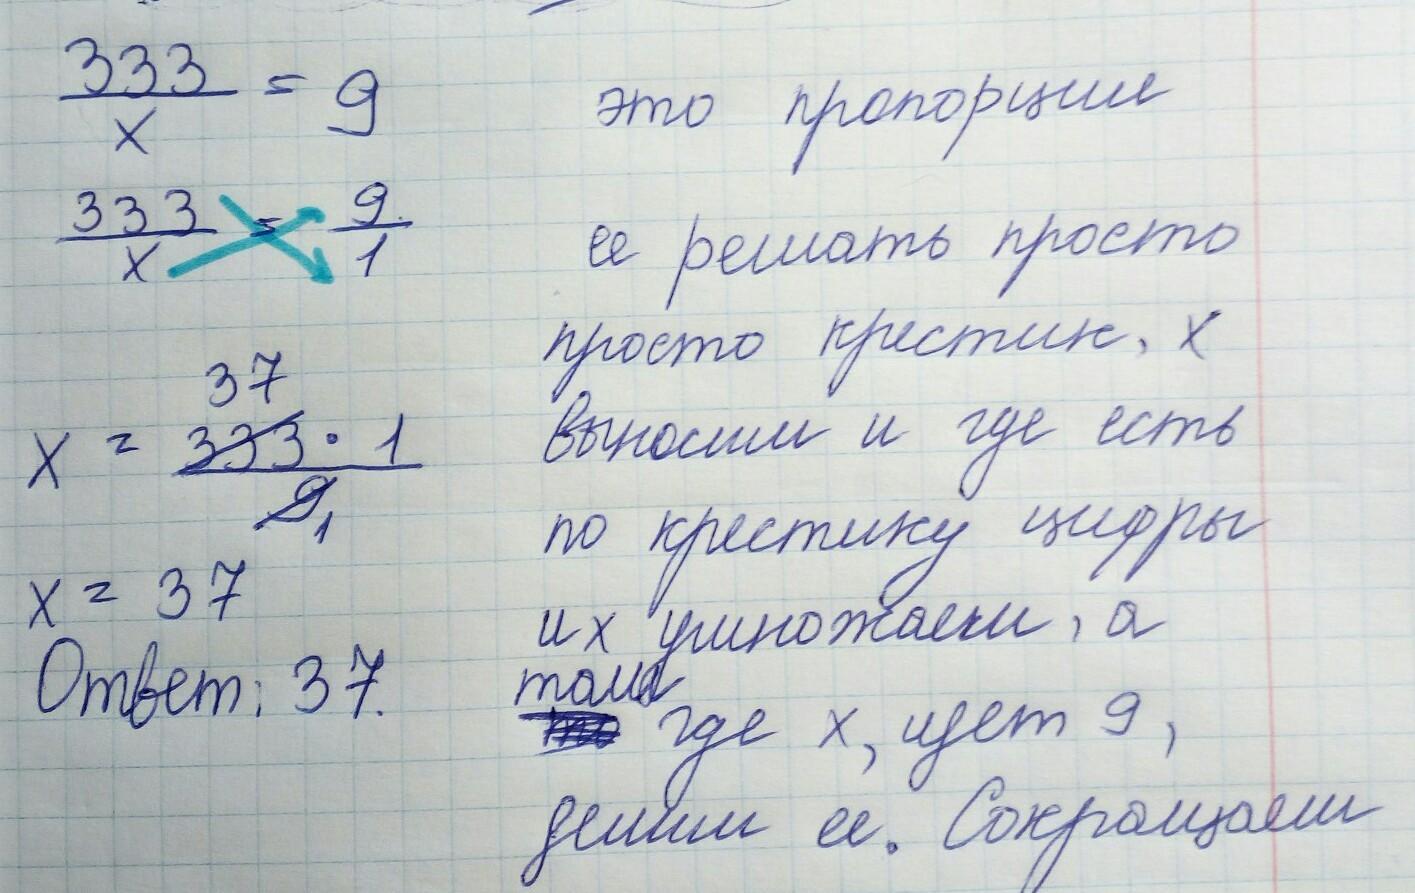 333/x = 9
это пропорции
333/x = 9/1
ее решать просто
просто крестик, x
37
x = 333 · 1 / 9 1
выносим и где есть
по крестику цифры
x = 37
их умножаем, а
Ответ: 37.
там
где x, идет 9,
делим ее. Сокращаем